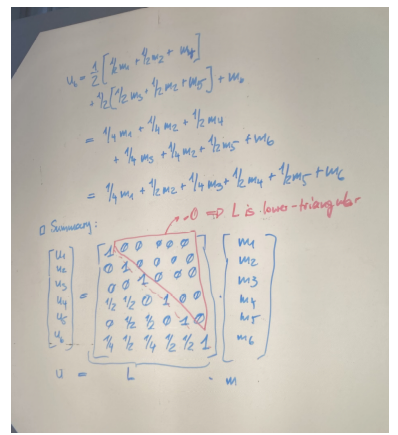 u₆ = 1/2 [1/2 m₁ + 1/2 m₂ + m₄]
+ 1/2 [1/2 m₃ + 1/2 m₂ + m₅] + m₆
= 1/4 m₁ + 1/4 m₂ + 1/2 m₄
+ 1/4 m₃ + 1/4 m₂ + 1/2 m₅ + m₆
= 1/4 m₁ + 1/2 m₂ + 1/4 m₃ + 1/2 m₄ + 1/2 m₅ + m₆
Summary:
=0 ⇒ L is lower-triangular
[u₁ u₂ u₃ u₄ u₅ u₆] =
1 0 0 0 0 0
0 1 0 0 0 0
0 0 1 0 0 0
1/2 1/2 0 1 0 0
0 1/2 1/2 0 1 0
1/4 1/2 1/4 1/2 1/2 1
· [m₁ m₂ m₃ m₄ m₅ m₆]
u = L · m